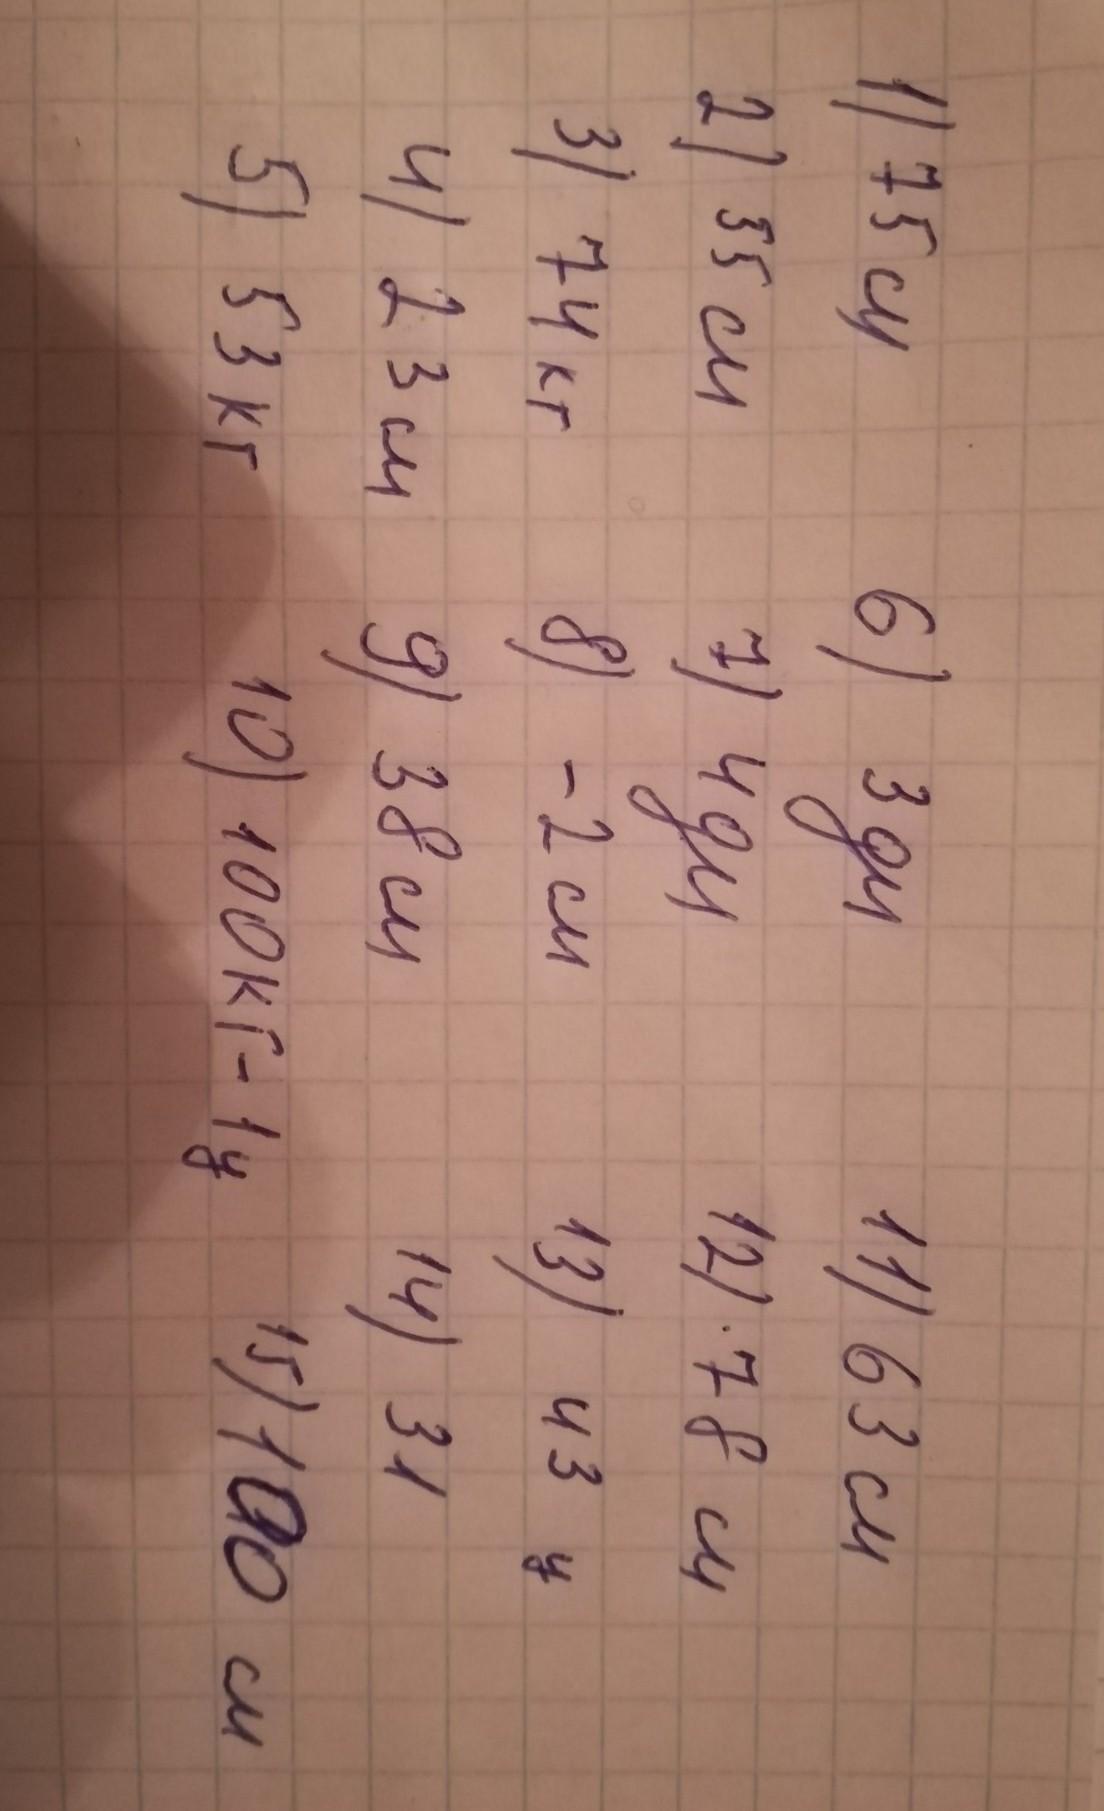 1) 75 см 6) 3 дм 11) 63 см
2) 35 см 7) 4 дм 12) 78 см
3) 74 кг 8) -2 см 13) 43 ц
4) 23 см 9) 38 см 14) 31
5) 53 кг 10) 100 кг - 1 ц 15) 100 см